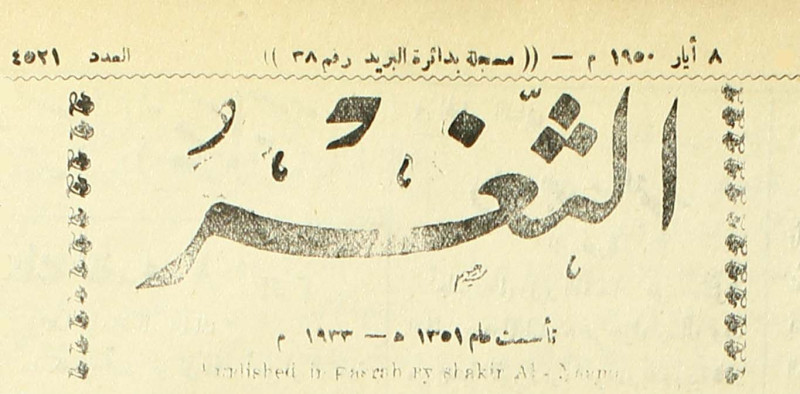 ٨ أيار ١٩٥٠ م — (( مسجلة بدائرة البريد رقم ٣٨ )) العدد ٤٥٢١
الثَّغْرُ
تأسست عام ١٣٥١ ه — ١٩٣٣ م
in Basrah By Shakir Al-